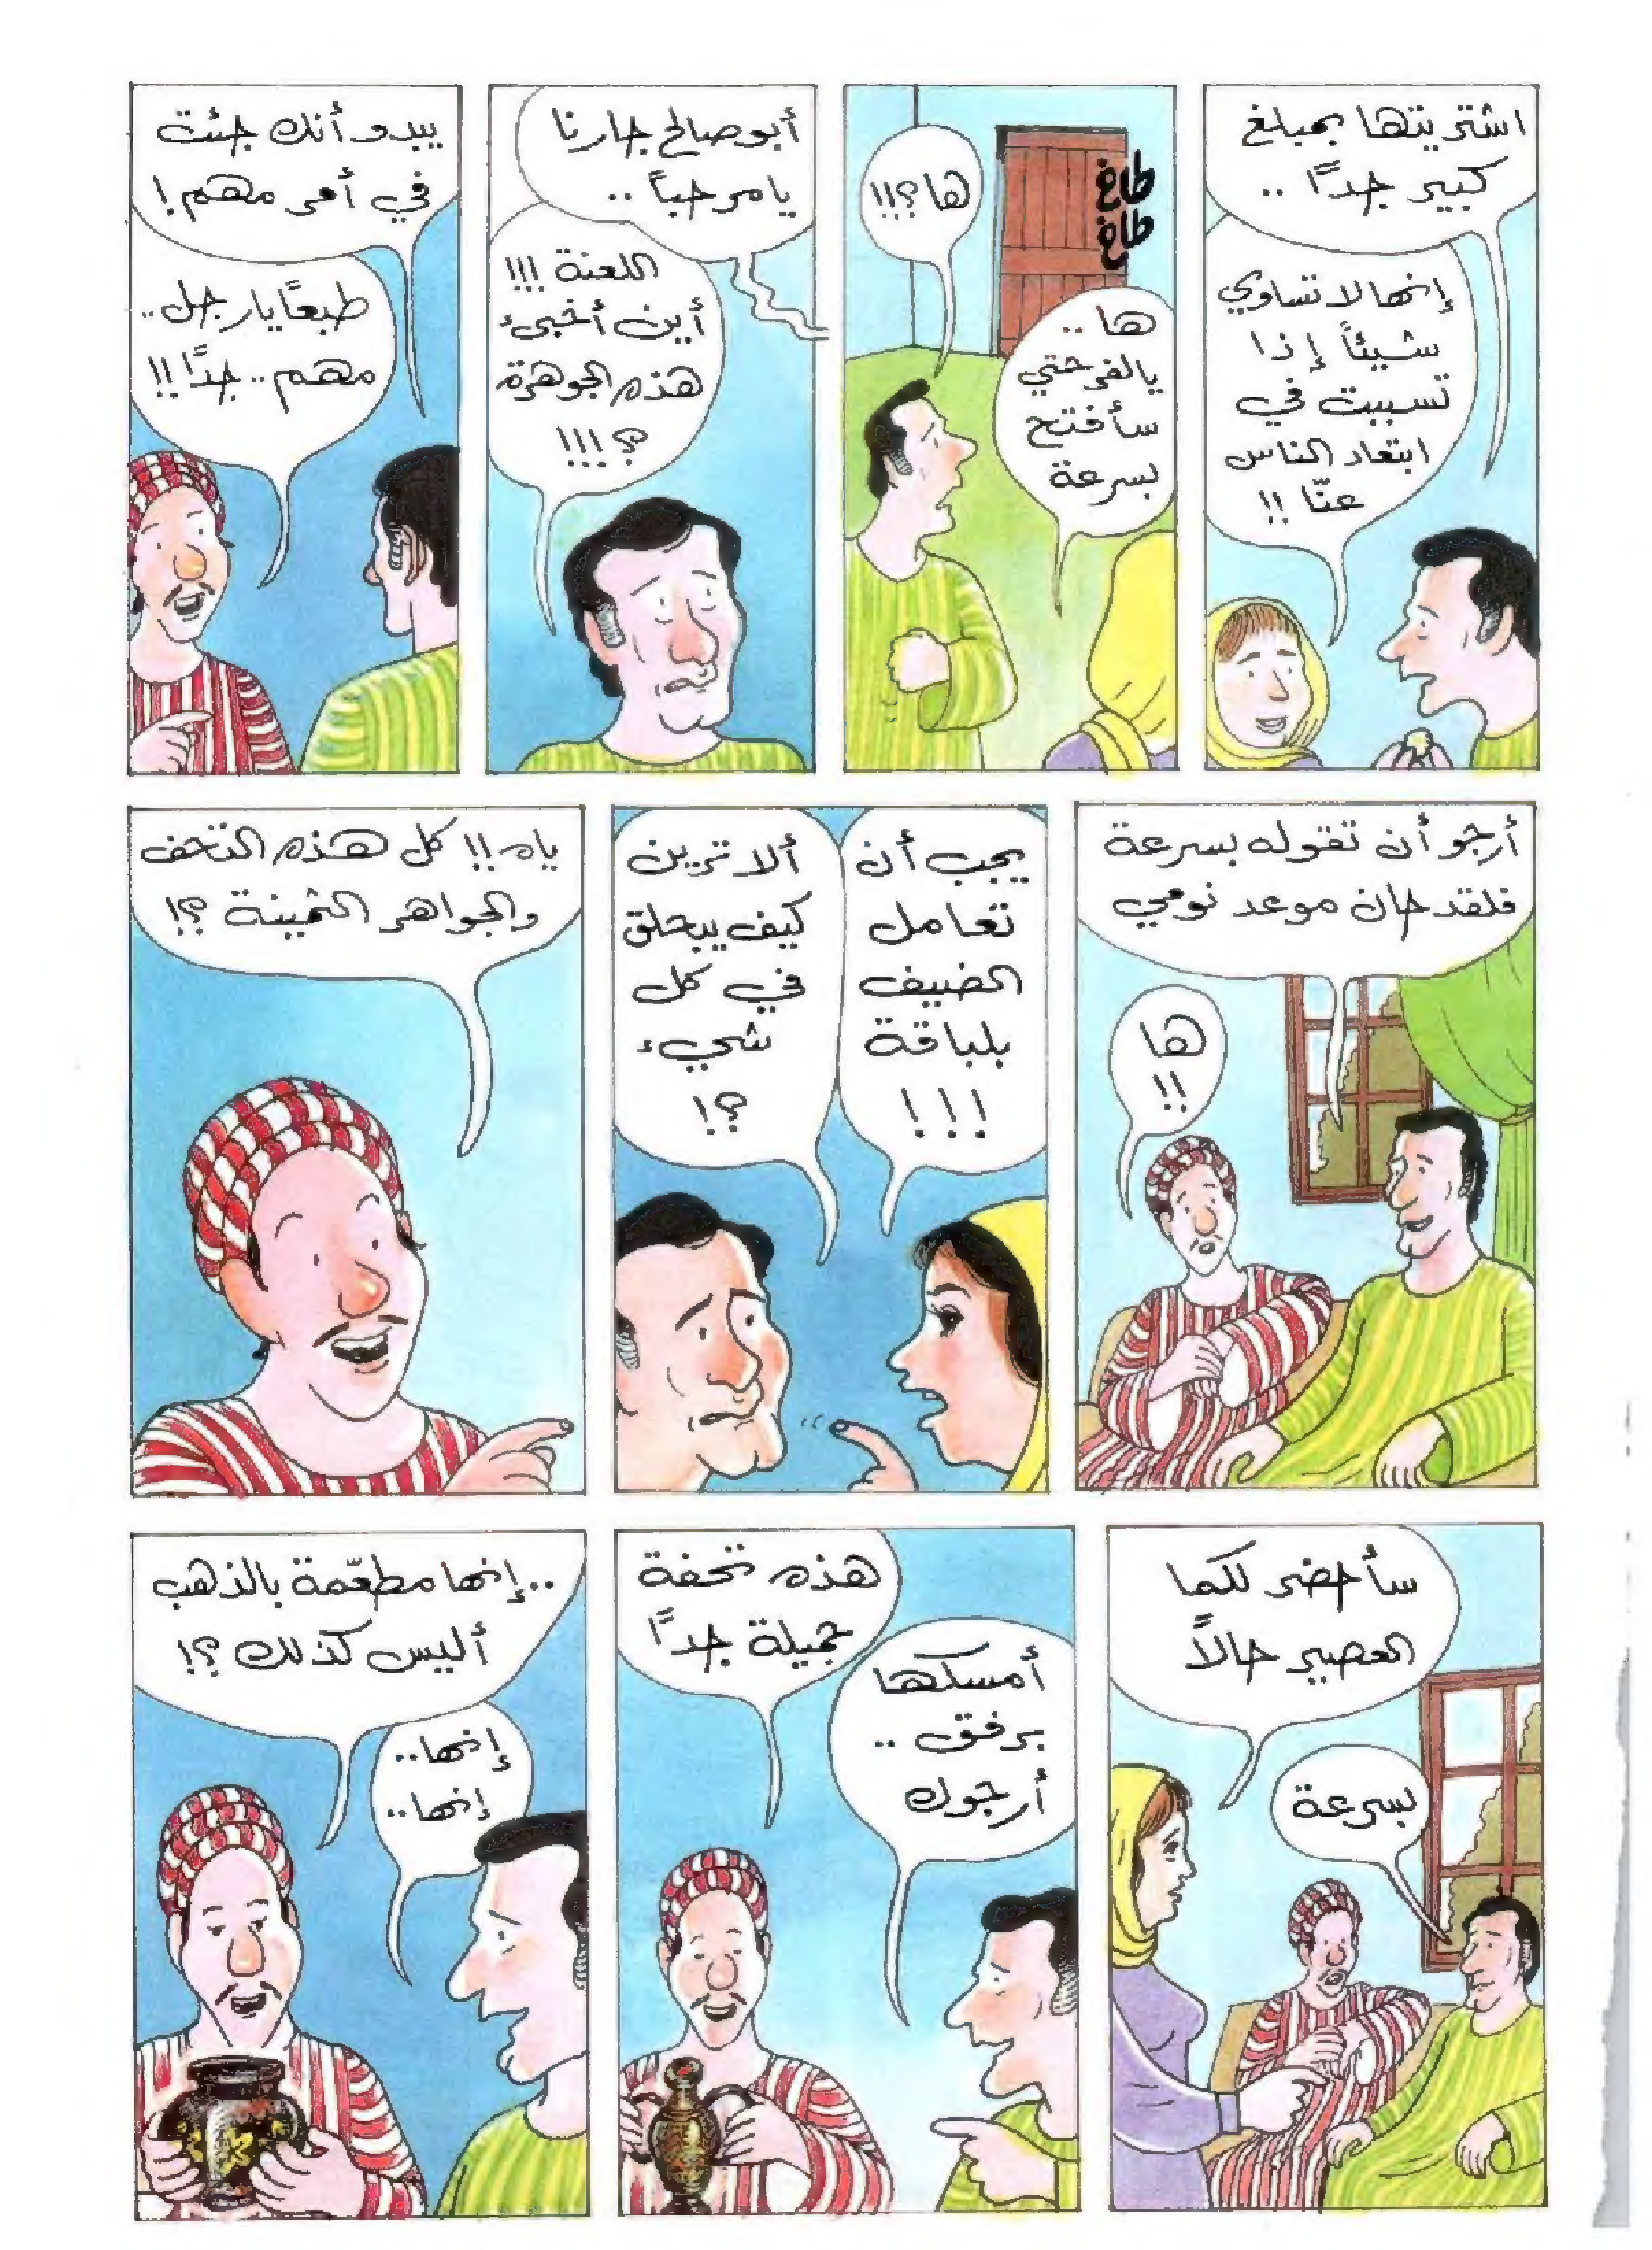 اشتريتها بمبلغ
كبير جدًا ..
إنها لا تساوي
شيئاً إذا
تسببت في
ابتعاد الناس
عنّا !!
طاخ
طاخ
ها؟!!
ها ..
يالفرحتي
سأفتح
بسرعة
أبو صالح جارنا
يا مرحباً ..
اللعنة !!!
أين أخبىء
هذه الجوهرة
؟!!!
يبدو أنك جئت
في أمر مهم !
طبعًا يا رجل ..
مهم .. جدًا !!
أرجو أن تقوله بسرعة
فلقد حان موعد نومي
ها
!!
يجب أن
تعامل
الضيف
بلباقة
!!!
ألا ترين
كيف يبحلق
في كل
شيء
؟!
ياه !! كل هذه التحف
والجواهر الثمينة ؟!
سأحضر لكما
العصير حالاً
بسرعة
هذه تحفة
جميلة جدًا
أمسكها
برفق ..
أرجوك
..إنها مطعّمة بالذهب
أليس كذلك ؟!
إنها..
إنها..